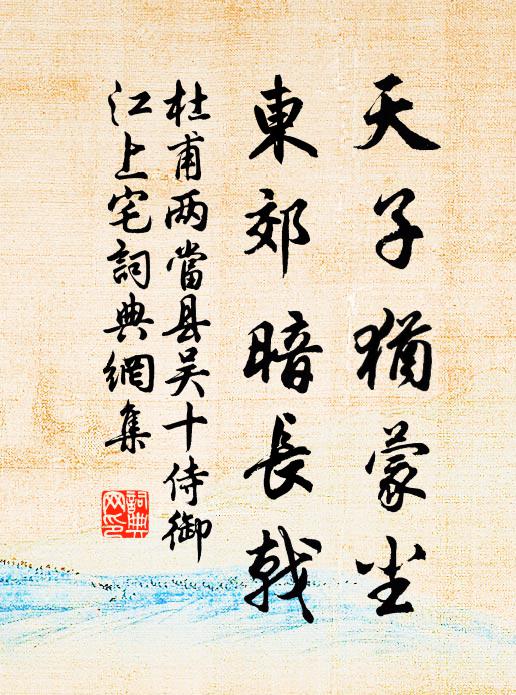 天子猶蒙尘
東郊暗長戟
杜甫两當县吴十侍御
江上宅詞典網集
詞典
网印